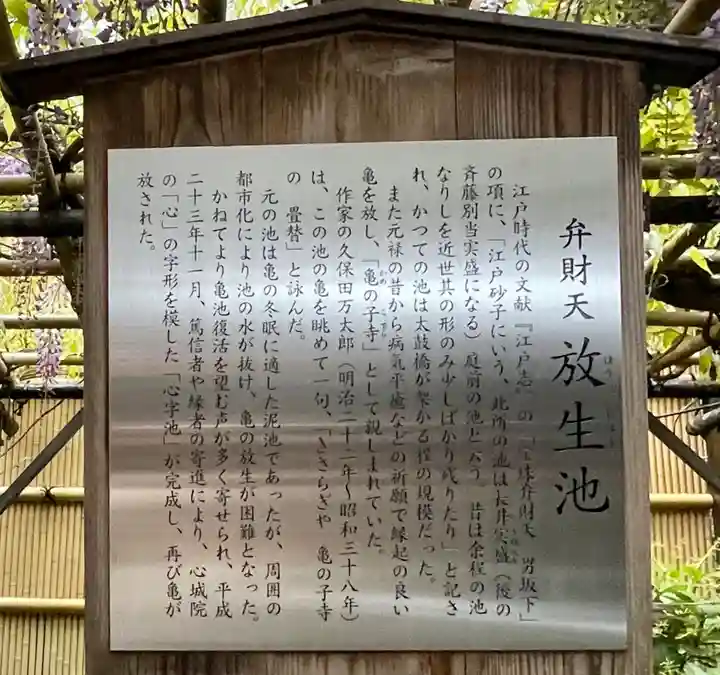 弁財天 放生池
江戸時代の文献『江戸志』の「宝珠弁財天 男坂下」
の項に、「江戸砂子にいう、此所の池は長井実盛(後の
斉藤別当実盛になる)庭前の池と云う 昔は余程の池
なりしを近世其の形のみ少しばかり残りたり」と記さ
れ、かつての池は太鼓橋が架かる程の規模だった。
また元禄の昔から病気平癒などの祈願で縁起の良い
亀を放し、「亀の子寺」として親しまれていた。
作家の久保田万太郎(明治二十二年~昭和三十八年)
は、この池の亀を眺めて一句、「きさらぎや 亀の子寺
の 畳替」と詠んだ。
元の池は亀の冬眠に適した泥池であったが、周囲の
都市化により池の水が抜け、亀の放生が困難となった。
かねてより亀池復活を望む声が多く寄せられ、平成
二十三年十一月、篤信者や縁者の寄進により、心城院
の「心」の字形を模した「心字池」が完成し、再び亀が
放された。